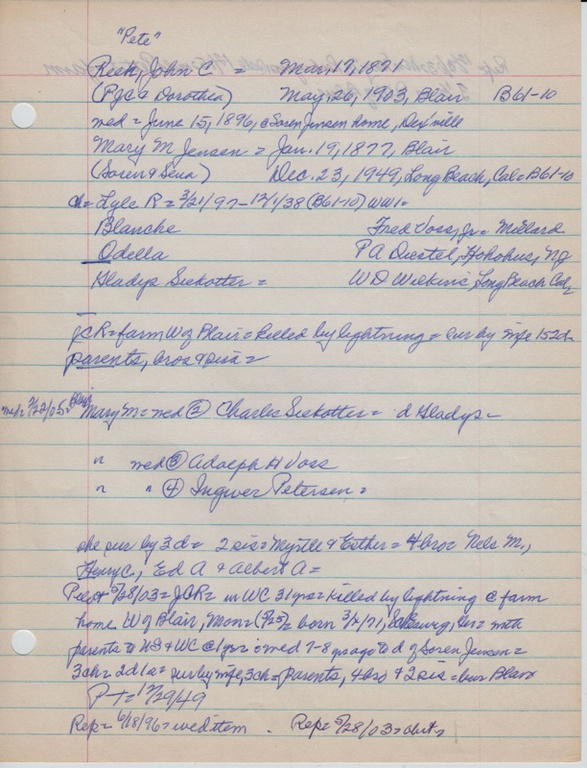 "Pete"
John C = Mar. 17, 1871
(PJC & Dorothea) May 26, 1903, Blair B61-10
wed = June 15, 1896, @ Soren Jensen home,
Mary M Jensen = Jan. 19, 1877, Blair
(Soren & Sena) Dec. 23, 1949, Long Beach, Cal = B61-10
ch = Lyle R = 3/21/97 - 12/1/38 (B61-10) WW1 =
Blanche Fred Voss, Jr = Millard
Odella P A Diestel, Hohokus, NJ
Gladys Siekotter = W D Wilkins, Long Beach Cal
JCR = farm W of Blair = killed by lightning = sur by wife 1s2d
parents, bros & sis =
wed = 2/22/05 = Blair Mary M = wed ② Charles Siekotter = d Gladys =
" wed ③ Adolph H Voss
" " ④ Ingwer Petersen =
she sur by 3d = 2 sis = Myrtle & Esther = 4 bro = Nels M.,
Henry C, Ed A & Albert A =
5/28/03 = JCR = in WC 31 yrs = killed by lightning @ farm
home W of Blair, Mon = (5/25) = born 3/ /71, Ger = with
parents to US & WC @ 1 yr = wed 7-8 yrs ago to d of Soren Jensen =
3ch = 2d 1s = sur by wife, 3ch = parents, 4 bro & 2 sis = bur Blair
P-T = 12/29/49
Rep = 6/18/96 = wed item. Rep = 5/28/03 = obit =